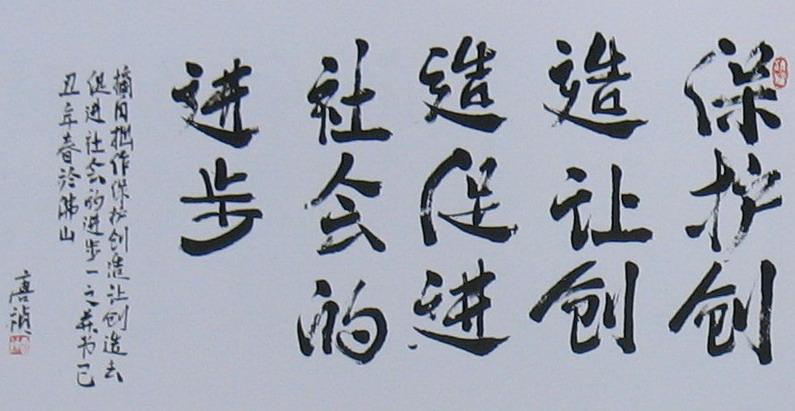 保护创
造让创
造促进
社会的
进步
摘自拙作保护创造让创造去
促进社会的进步一文并书己
丑年春于佛山
唐祯